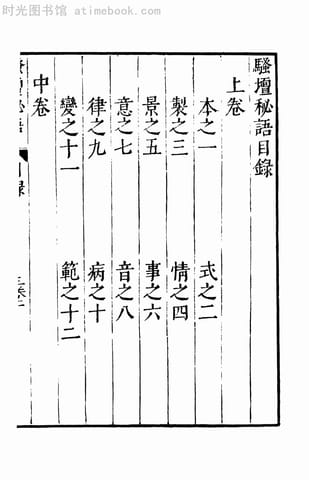 时光图书馆 · atimebook.com
騷壇秘語目錄
上卷
本之一 式之二
製之三 情之四
景之五 事之六
意之七 音之八
律之九 病之十
變之十一 範之十二
中卷